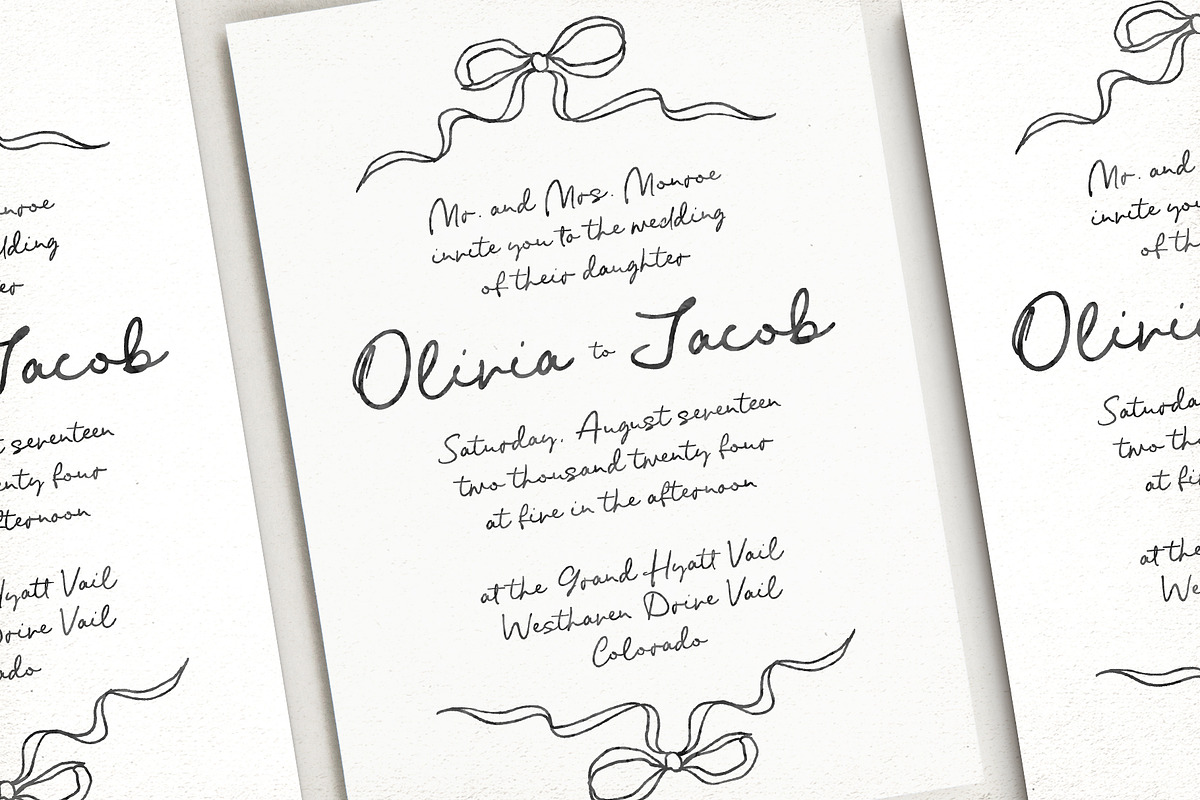 Jacob
seventeen
Hyatt Vail
Drive Vail
Mr. and Mrs. Monroe
invite you to the wedding
of their daughter
Olivia to Jacob
Saturday, August seventeen
two thousand twenty four
at five in the afternoon
at the Grand Hyatt Vail
Westhaven Drive Vail
Colorado
Mr. and
invite you
of
two
at
at the